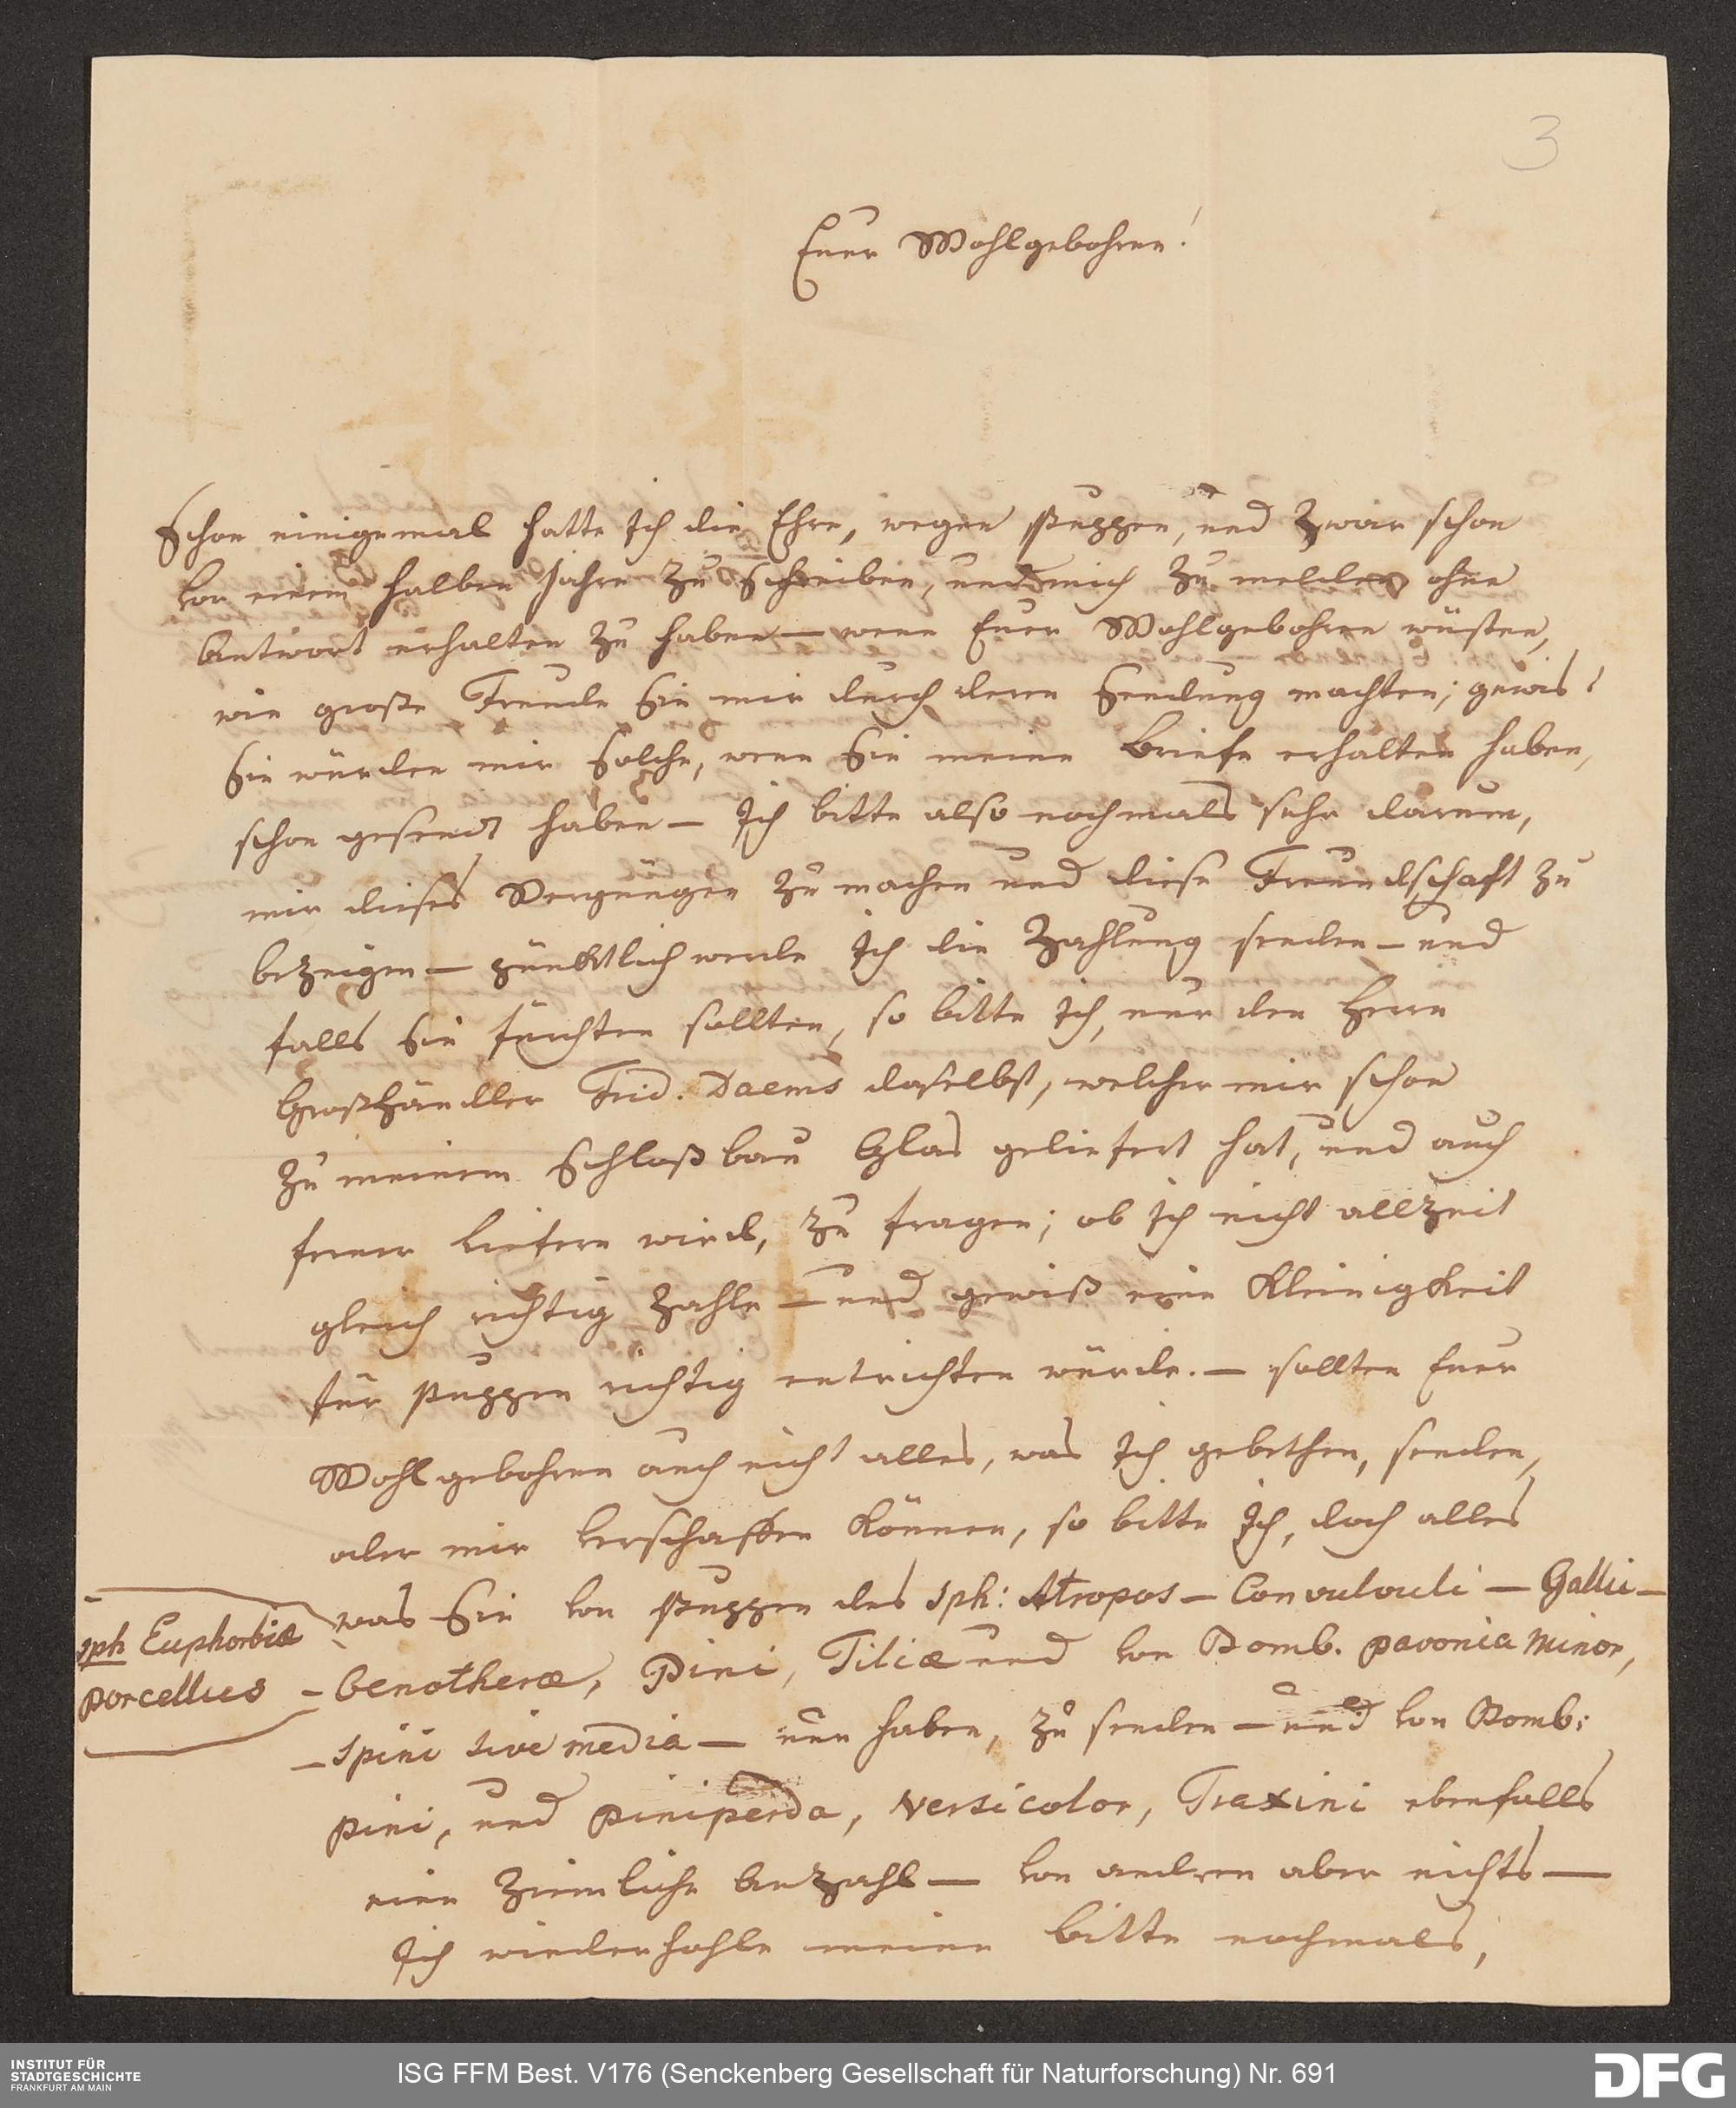 3
Euer Wohlgebohren!
Schon einigemal hatte Ich die Ehre, wegen Puppen, und zwar schon
vor einem halben Jahre zu Schreiben, und mich zu melden ohne
Antwort erhalten zu haben — wenn Euer Wohlgebohren wüsten,
wie große Freude Sie mir durch deren Sendung machten; gewis!
Sie würden mir Solche, wenn Sie meine Briefe erhalten haben,
schon gesendt haben — Ich bitte also nochmals sehr darum,
mir dieses Vergnügen zu machen und diese Freundschaft zu
bezeigen — pünktlich werde Ich die Zahlung senden — und
falls Sie fürchten sollten, so bitte Ich, nur den Herrn
Großhändler Frid. Daems daselbst, welcher mir schon
zu meinem Schloßbau Glas geliefert hat, und auch
ferner liefern wird, zu fragen; ob Ich nicht allzeit
gleich richtig zahle — und gewiß eine Kleinigkeit
für Puppen richtig entrichten würde. — sollten Euer
Wohlgebohren auch nicht alles, was Ich gebethen, senden,
oder mir verschaffen können, so bitte Ich, doch alles
was Sie von Puppen des Sph: Atropos — Convulvuli — Gallii —
Sph Euphorbiæ
porcellus
— Oenotheræ, Pini, Tiliæ und von Bomb. pavonia minor,
— Spini sive media — nun haben, zu senden — und von Bomb:
pini, und piniperda, versicolor, Fraxini ebenfalls
eine ziemliche Anzahl — von andren aber nichts —
Ich wiederhohle meine bitte nochmals,
INSTITUT FÜR
STADTGESCHICHTE
FRANKFURT AM MAIN
ISG FFM Best. V176 (Senckenberg Gesellschaft für Naturforschung) Nr. 691
DFG